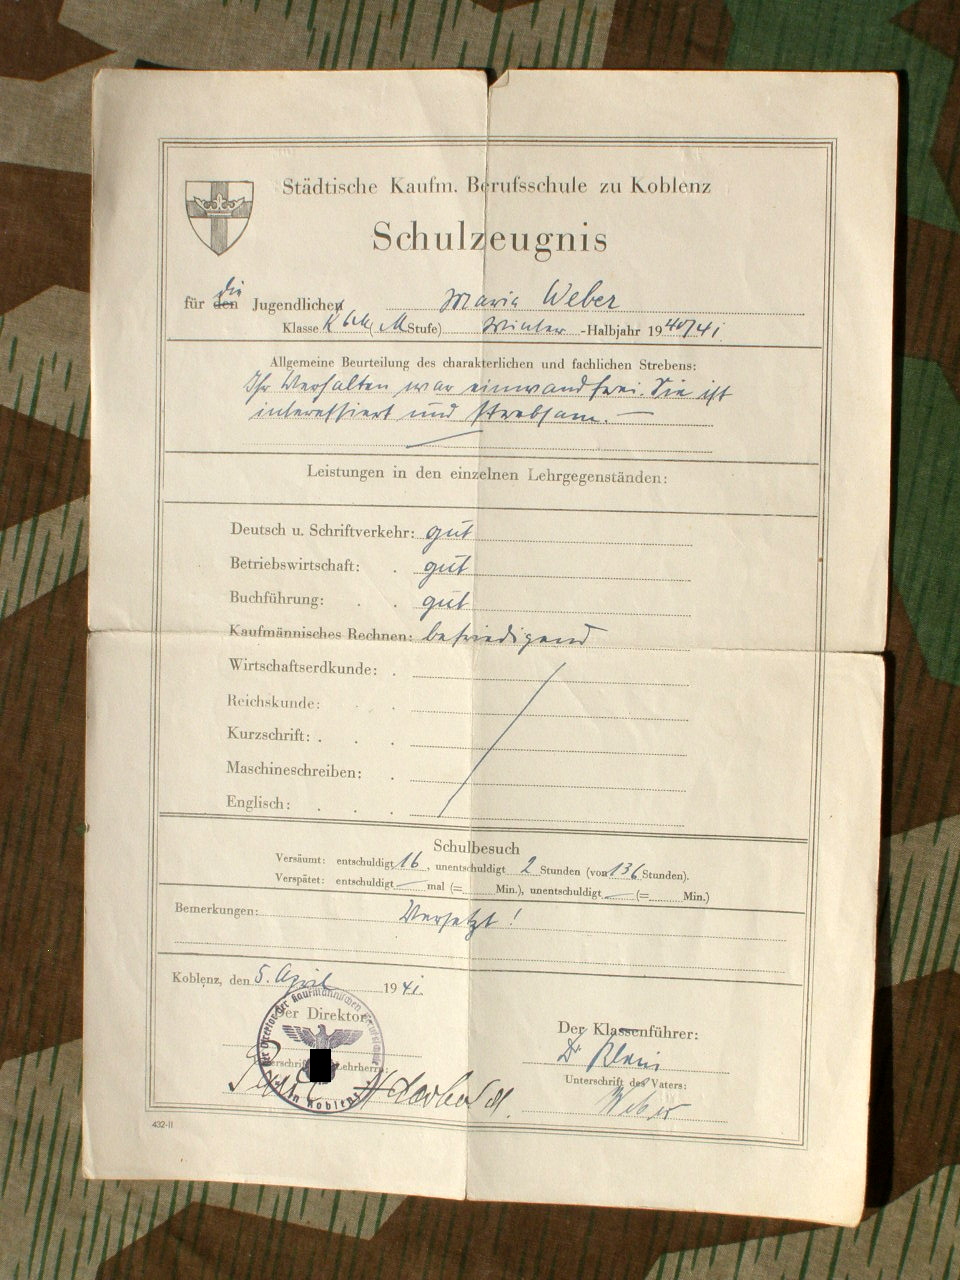 Städtische Kaufm. Berufsschule zu Koblenz
Schulzeugnis
die
für den Jugendlichen Maria Weber
Klasse (M Stufe) Winter -Halbjahr 1940/41.
Allgemeine Beurteilung des charakterlichen und fachlichen Strebens:
Ihr Verhalten war einwandfrei. Sie ist
interessiert und strebsam. —
Leistungen in den einzelnen Lehrgegenständen:
Deutsch u. Schriftverkehr: gut
Betriebswirtschaft: . gut
Buchführung: . . gut
Kaufmännisches Rechnen: befriedigend
Wirtschaftserdkunde: .
Reichskunde: . .
Kurzschrift: . . .
Maschineschreiben: .
Englisch: . . .
Schulbesuch
Versäumt: entschuldigt 16, unentschuldigt 2 Stunden (von 136 Stunden).
Verspätet: entschuldigt — mal (= Min.), unentschuldigt — (= Min.)
Bemerkungen: Versetzt!
Koblenz, den 5. April 1941.
Der Direktor
Der Direktor der Kaufmännischen Berufsschule in Koblenz
Lehrherrn:
Der Klassenführer:
Dr Klein
Unterschrift des Vaters:
Weber
432-II